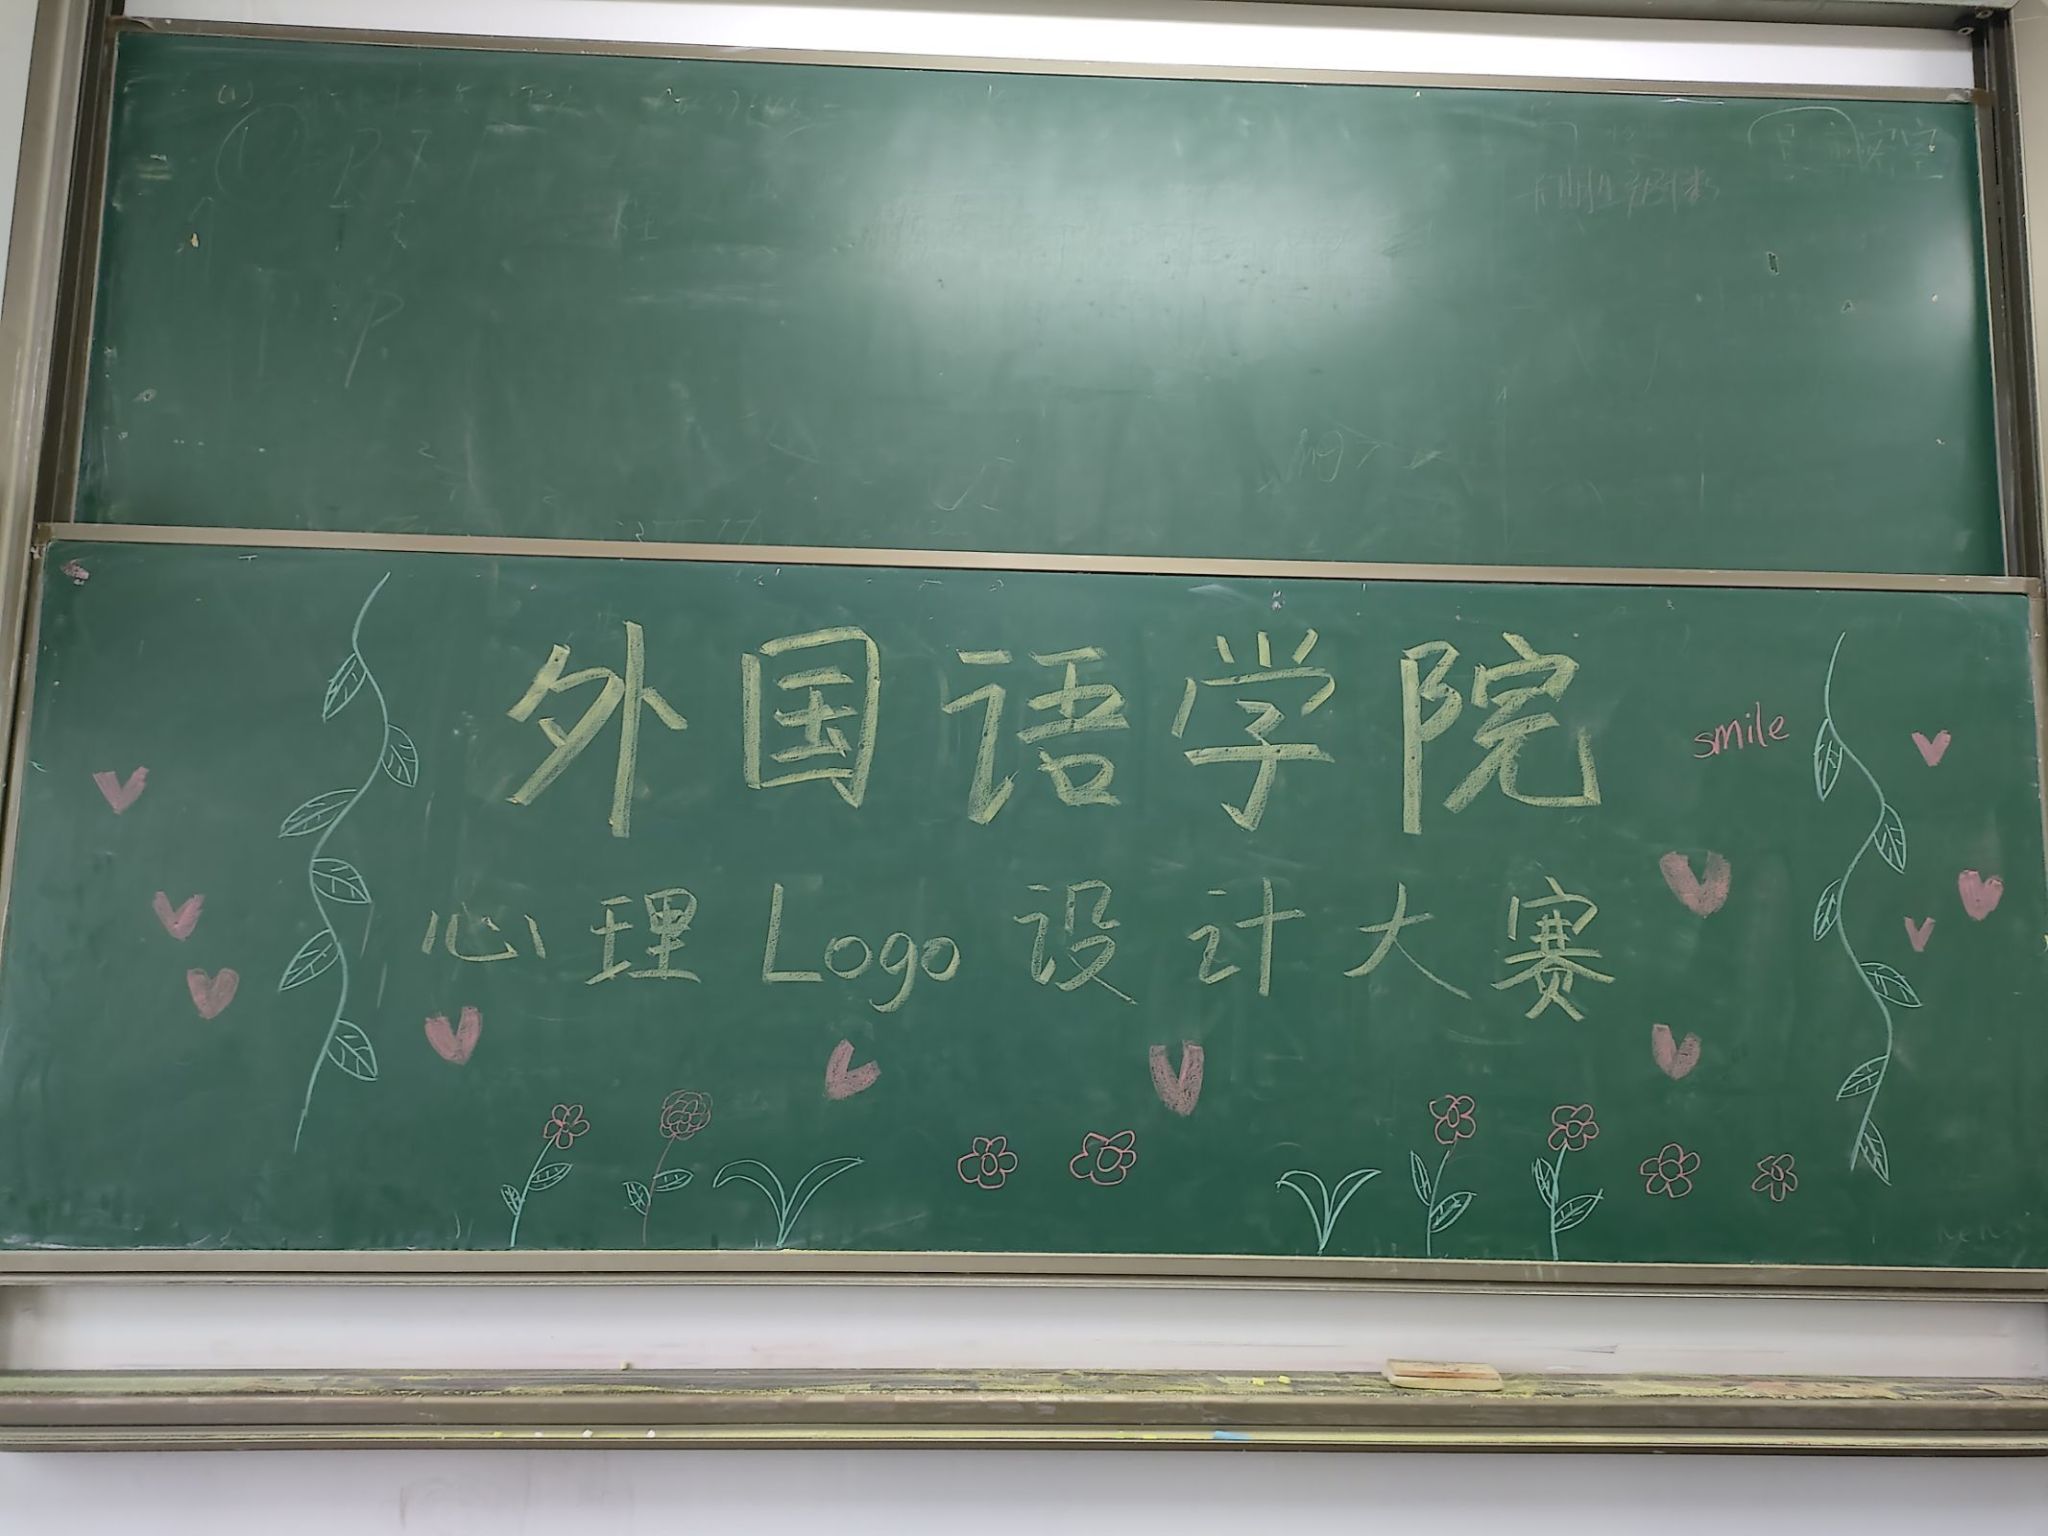 外国语学院
smile
心理Logo设计大赛